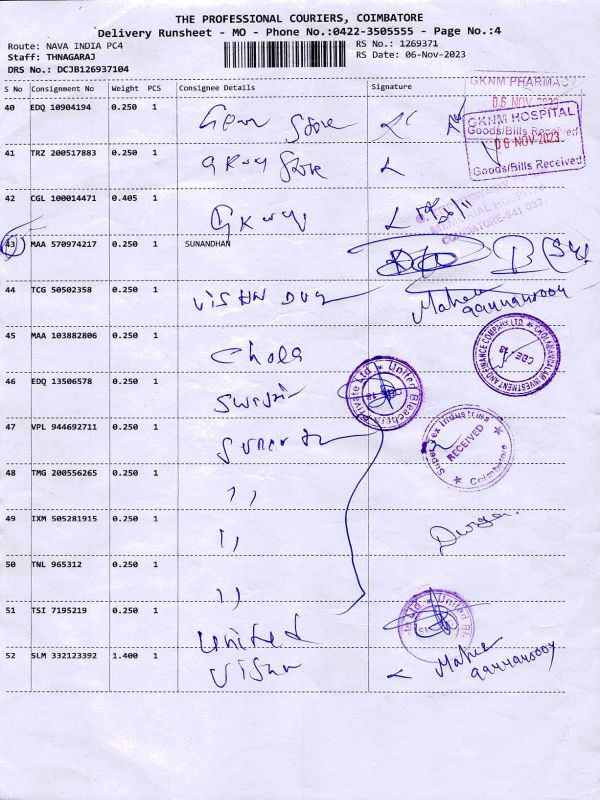 THE PROFESSIONAL COURIERS, COIMBATORE
Delivery Runsheet - MO - Phone No.:0422-3505555 - Page No.:4
Route: NAVA INDIA PC4
RS No.: 1269371
Staff: THNAGARAJ
RS Date: 06-Nov-2023
DRS No.: DCJB126937104
S No Consignment No Weight PCS Consignee Details Signature
GKNM PHARMACY
06 NOV 2023
40 EDQ 10904194 0.250 1 Store
GKNM HOSPITAL
Goods/Bills Received
06 NOV 2023
Goods/Bills Received
41 TRZ 200517883 0.250 1 Store
42 CGL 100014471 0.405 1
MEMORIAL HOSPITAL
COIMBATORE-641 037.
43 MAA 570974217 0.250 1 SUNANDHAN
44 TCG 50502358 0.250 1
9944490004
45 MAA 103882806 0.250 1 Chola
CHOLAMANDALAM INVESTMENT AND FINANCE COMPANY LTD. CBE-18
46 EDQ 13506578 0.250 1
United Bleachers Private Ltd
47 VPL 944692711 0.250 1
Super Tex Industries RECEIVED Coimbatore
48 TMG 200556265 0.250 1 ,,
49 IXM 505281915 0.250 1 ,,
Durga
50 TNL 965312 0.250 1 ,,
51 TSI 7195219 0.250 1 United
52 SLM 332123392 1.400 1